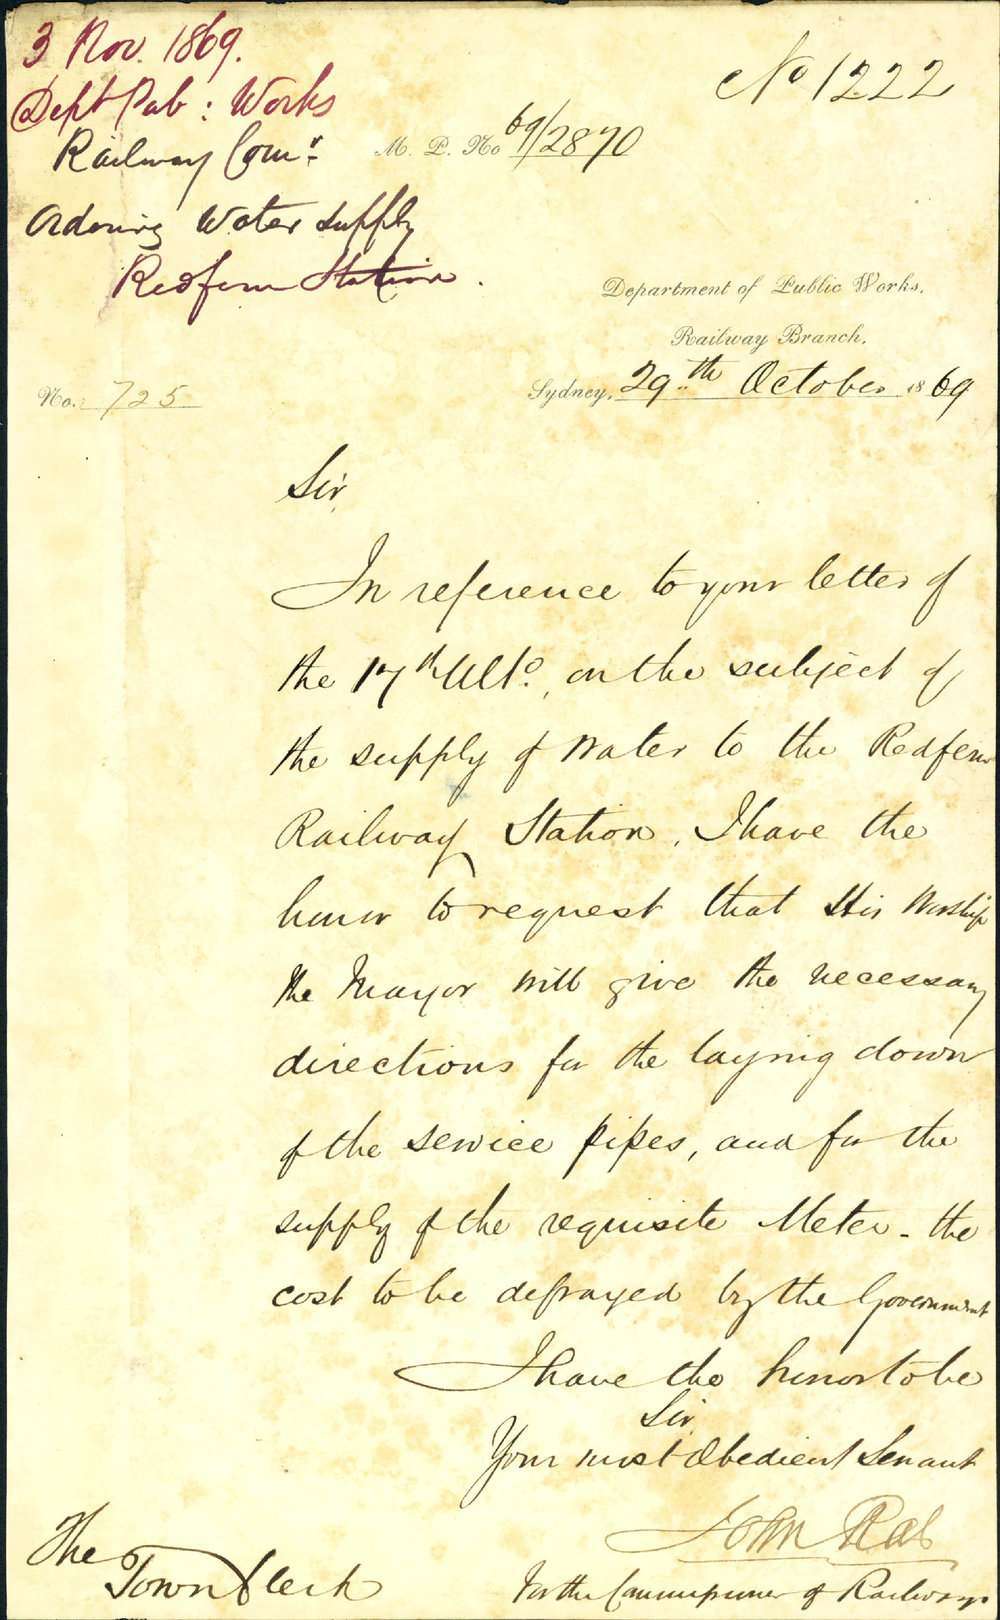 3 Nov. 1869.
Dept Pub : Works
Railway Comr.
Ordering Water supply
Redfern Station.
No 1222
M. P. No 69/2870
Department of Public Works,
Railway Branch,
Sydney, 29th October 1869
No. 725
Sir,
In reference to your letter of
the 17th Ulto., on the subject of
the supply of Water to the Redfern
Railway Station, I have the
honor to request that His Worship
the Mayor will give the necessary
directions for the laying down
of the service pipes, and for the
supply of the requisite Meter - the
cost to be defrayed by the Government
I have the honor to be
Sir,
Your most Obedient Servant
John Rae
For the Commissioner of Railways
The
Town Clerk